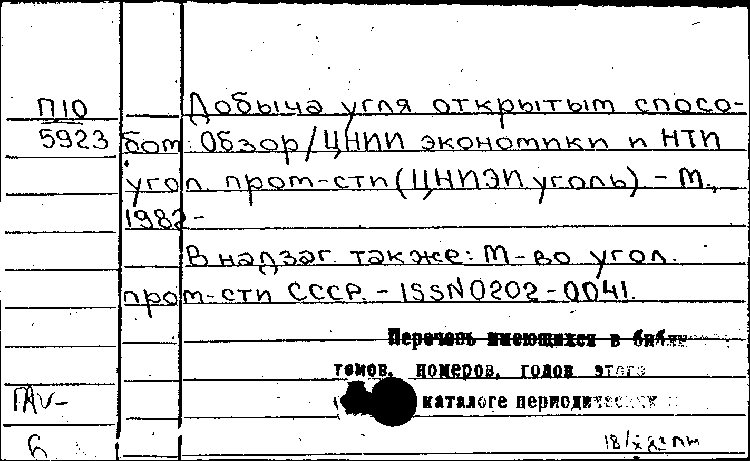 П10
5923
Добыча угля открытым спосо-
бом: Обзор/ЦНИИ экономики и НТИ
угол. пром-сти (ЦНИЭИуголь) - М.,
1982-
В надзаг также: М-во угол.
пром-сти СССР. - ISSN 0202-0041.
Перечень имеющихся в библи
томов, номеров, годов этого
каталоге периодически
6